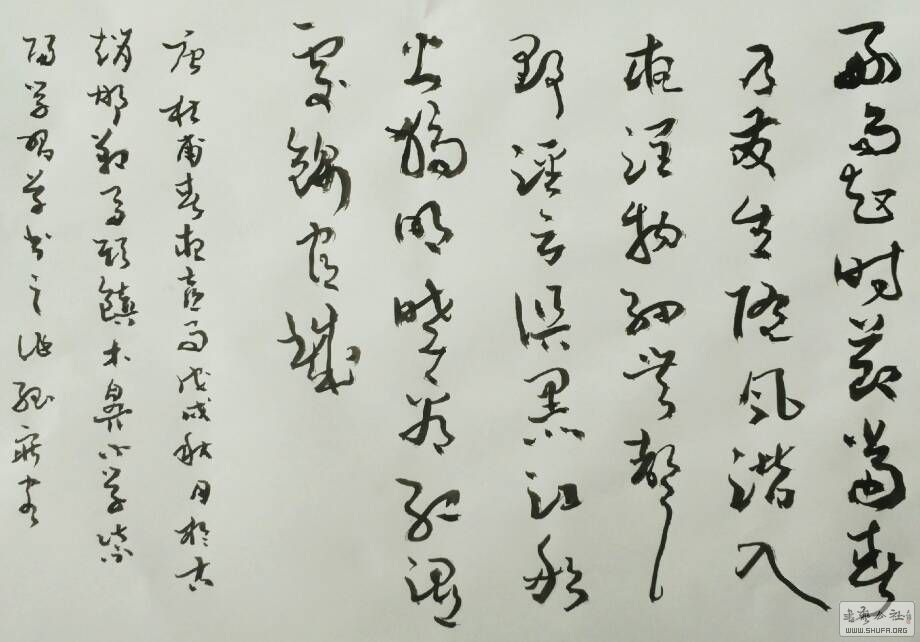 好雨知时节当春
乃发生随风潜入
夜润物细无声
野径云俱黑江船
火独明晓看红湿
处锦官城
唐杜甫春夜喜雨戊戌秋月于古
赵邯郸马头镇木小学
学习学书之
书艺公社
WWW.SHUFA.ORG